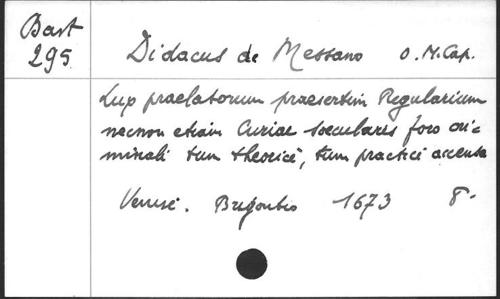 Bart
295
Didacus de Messano O.M.Cap.
Lux praelatorum praesertim Regularium
necnon etiam Curiae saecularis foro cri=
minali tum theorice, tum practice accensa
Venise. Brigontio 1673 8-